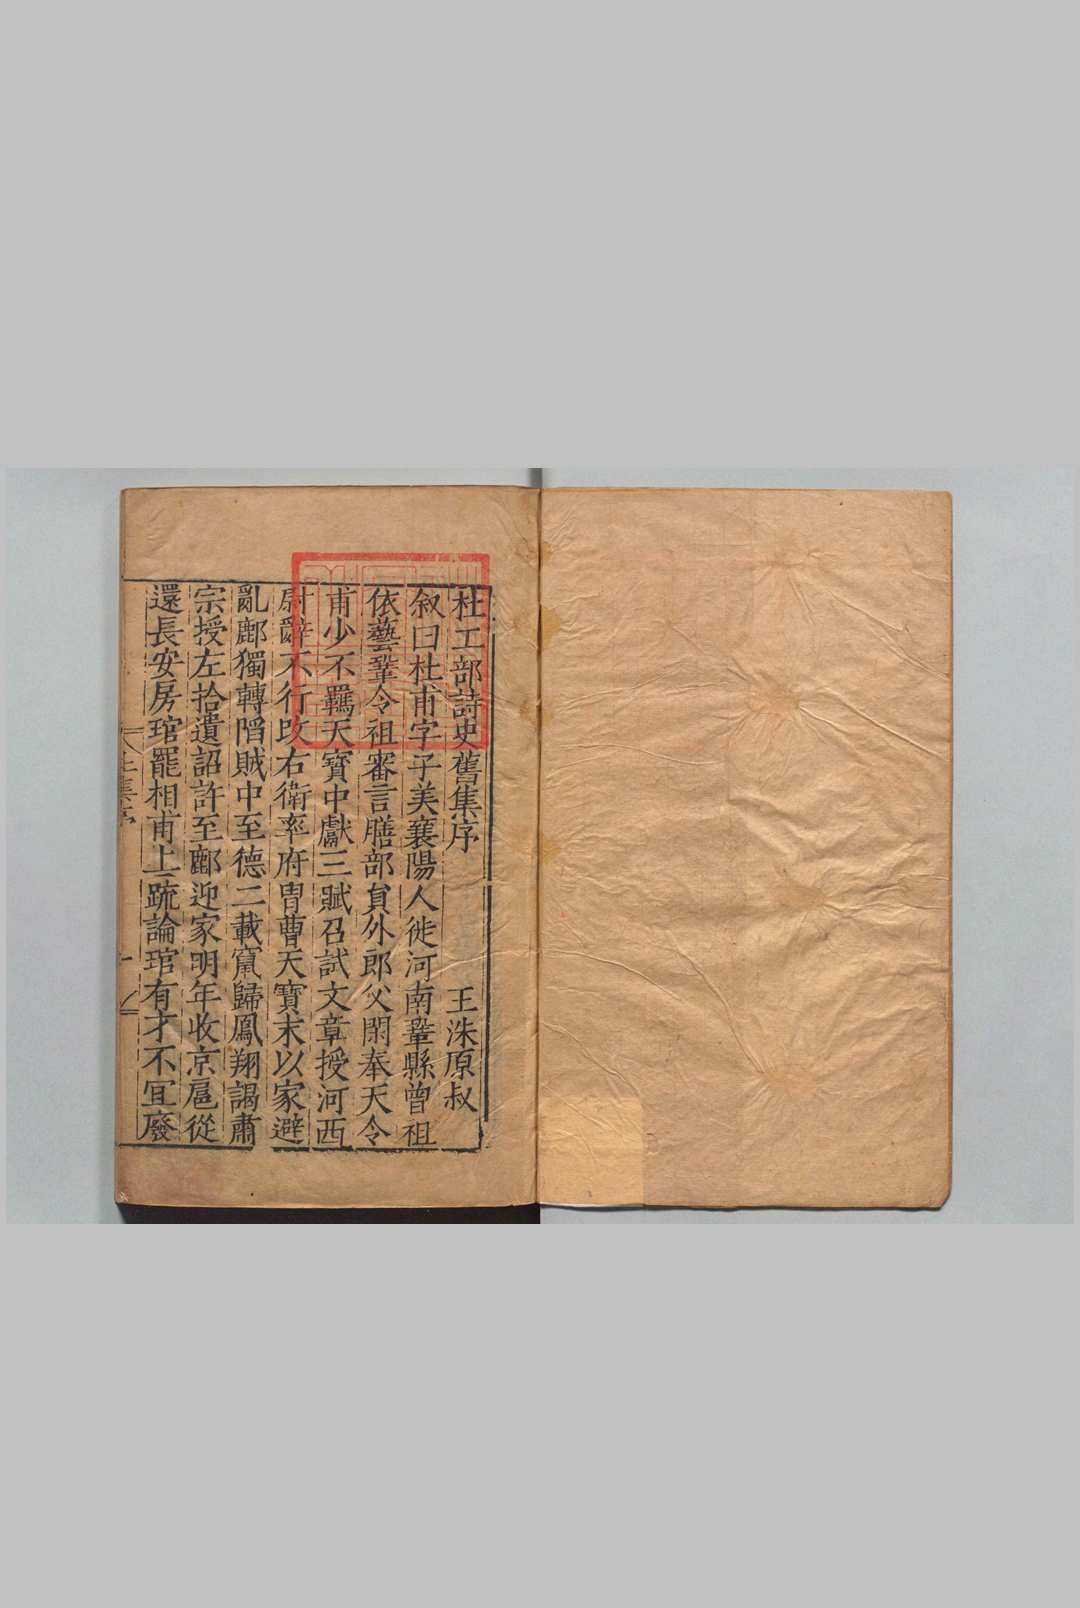 杜工部詩史舊集序
王洙原叔
叙曰杜甫字子美襄陽人徙河南鞏縣曾祖
依藝鞏令祖審言膳部貟外郎父閑奉天令
甫少不羈天寶中獻三賦召試文章授河西
尉辭不行改右衛率府冑曹天寶末以家避
亂鄜獨轉䧟賊中至德二載竄歸鳳翔謁肅
宗授左拾遺詔許至鄜迎家明年收京扈從
還長安房琯罷相甫上疏論琯有才不宜廢
杜集序
一